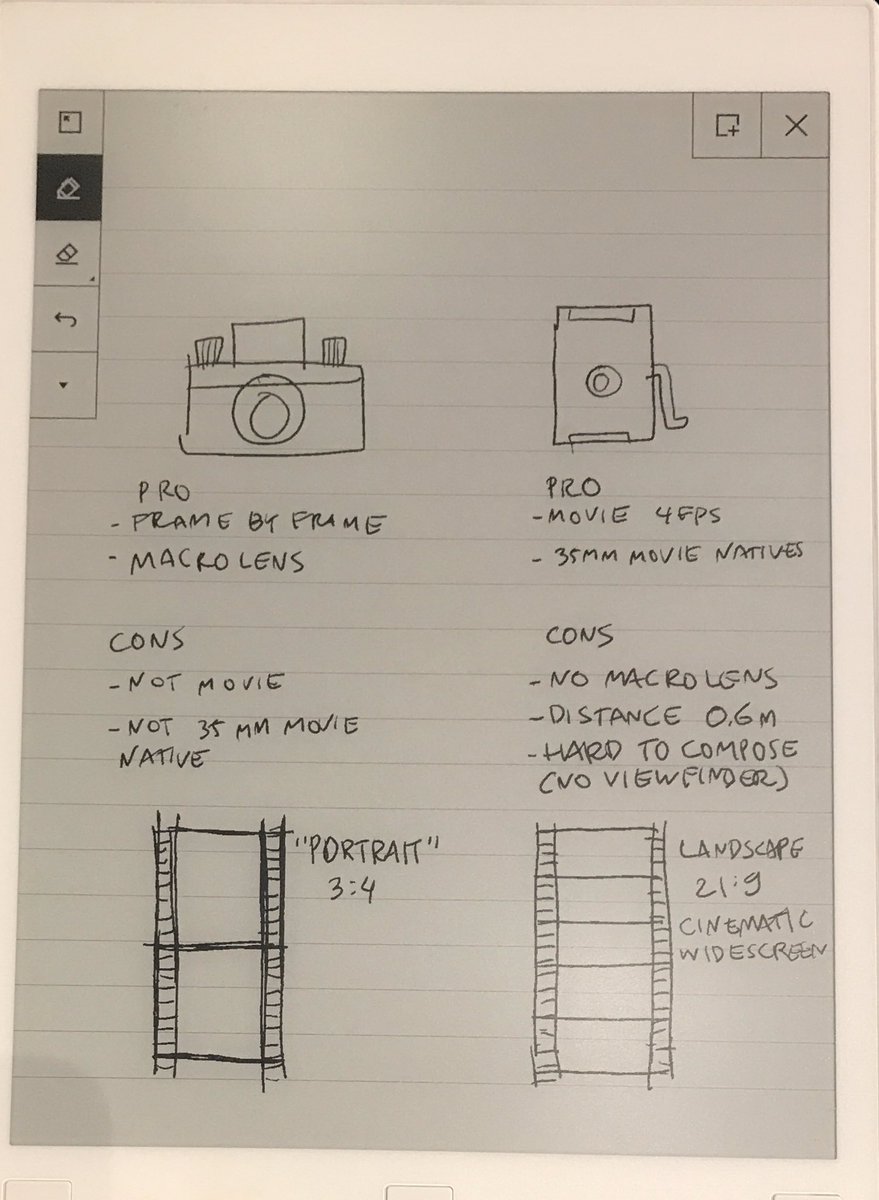 PRO
- FRAME BY FRAME
- MACRO LENS
CONS
- NOT MOVIE
- NOT 35 MM MOVIE
NATIVE
"PORTRAIT"
3:4
PRO
- MOVIE 4FPS
- 35MM MOVIE NATIVES
CONS
- NO MACRO LENS
- DISTANCE 0.6M
- HARD TO COMPOSE
(NO VIEWFINDER)
LANDSCAPE
21:9
CINEMATIC
WIDESCREEN